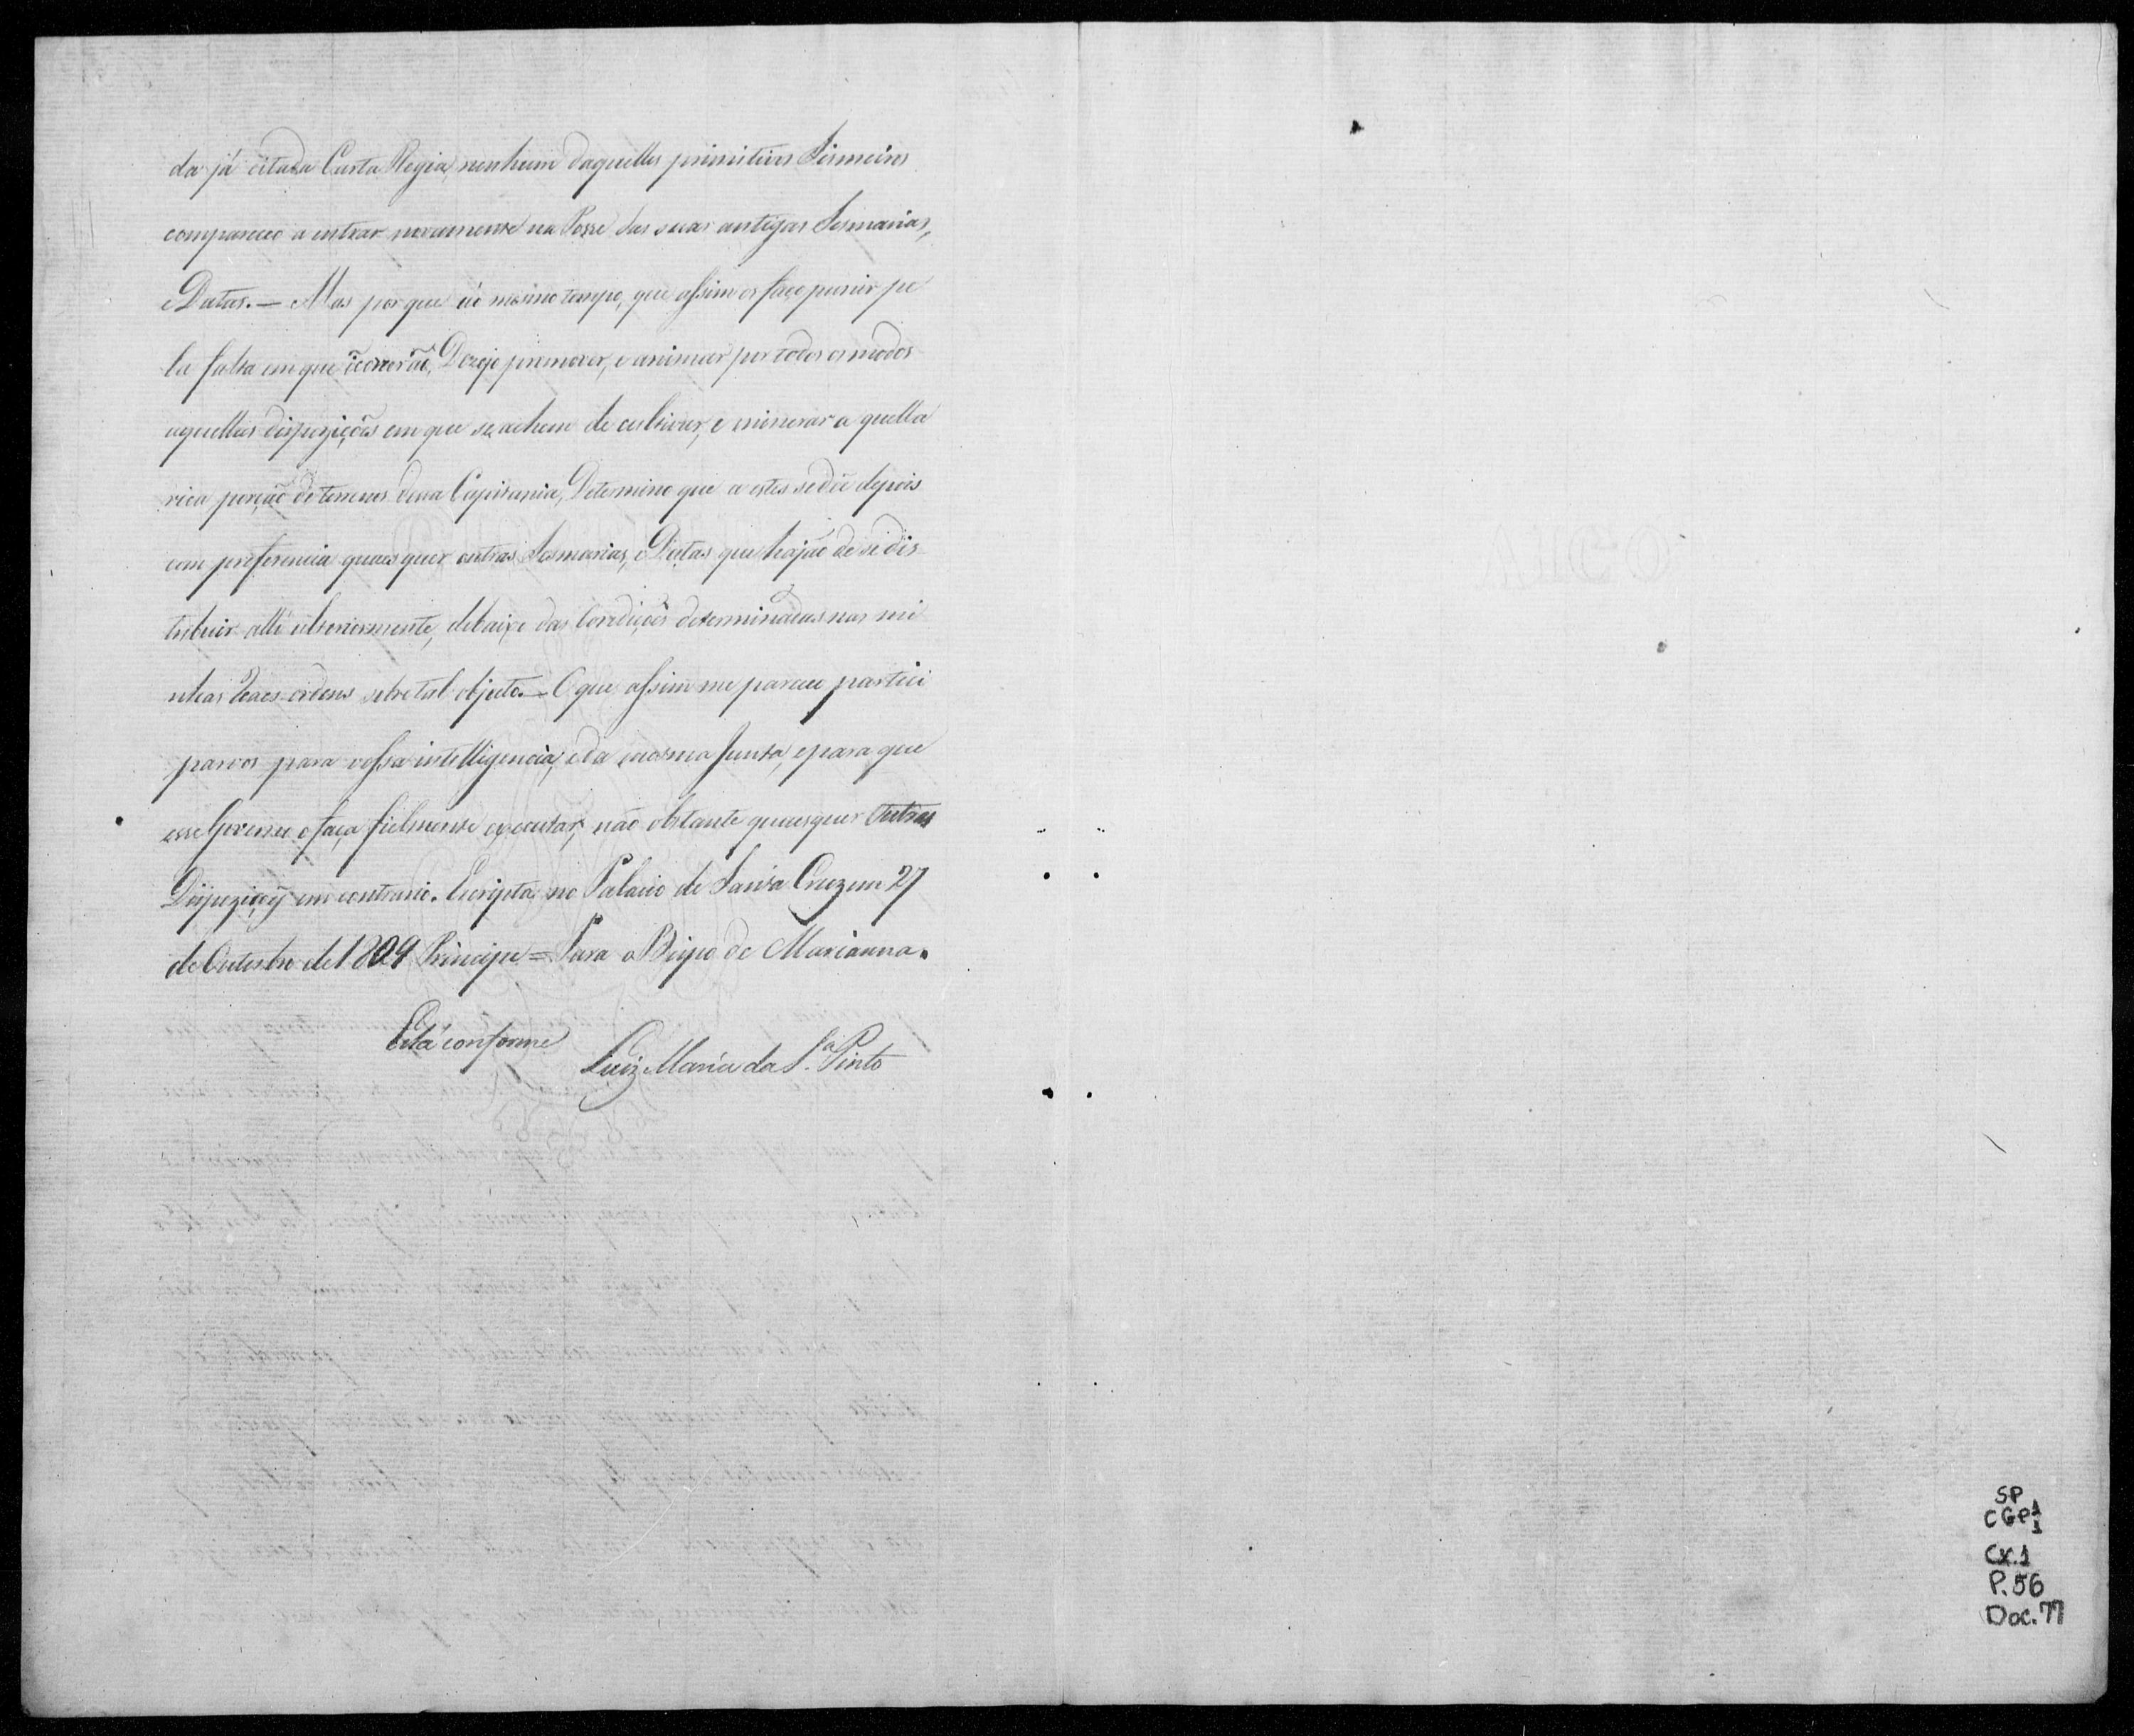 da já citada Carta Regia, nenhum daquelles primitivos Sismeiros
compareceo a entrar novamente na Posse das suas antigas Sesmarias,
e Datas. — Mas porque áo mesmo tempo, que assim os faço punir pe
la falta em que icorrerão, Dezejo promover, e animar por todos os modos
aquellas dispozições em que se achem de cultivar, e minerar a quella
rica porção de terrenos dessa Capitania, Determino que a estes se dê depois
com preferencia quaes quer outras Sesmarias, e Datas que hajão de se dis
tribuir alli ulteriormente, debaixo das Condições determinadas nas mi
nhas Reaes ordens sobre tal objecto. — O que assim me pareceu partici
parvos para vossa intelligencia, e da mesma Junta, e para que
esse Governo o faça fielmente executar, não obstante quaesquer Outras
Dispoziçoẽs em contrario. Escripta no Palacio de Santa Cruz em 27
de Outubro de 1809 Principe = Para o Bispo de Marianna.
Está conforme
Luiz Maria da S.ª Pinto
SP
CGP 1/1
Cx.1
P.56
Doc.77